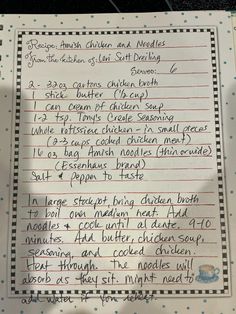 Recipe: Amish Chicken and Noodles
From the kitchen of: Lori Sutt Dreiling
Serves: 6
2 - 32oz cartons chicken broth
1 stick butter (½ cup)
1 can cream of chicken soup
1-2 tsp. Tony's Creole Seasoning
whole rotisserie chicken - in small pieces
(2-3 cups cooked chicken meat)
16 oz bag Amish noodles (thin or wide)
(Essenhaus brand)
Salt & pepper to taste
In large stockpot, bring chicken broth
to boil over medium heat. Add
noodles & cook until al dente, 9-10
minutes. Add butter, chicken soup,
seasoning, and cooked chicken.
Heat through. The noodles will
absorb as they sit. might need to
add water if you reheat.